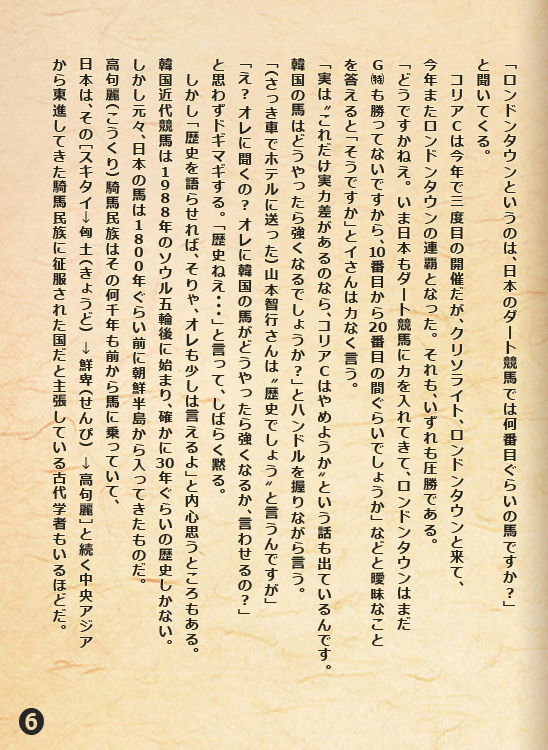 「ロンドンタウンというのは、日本のダート競馬では何番目ぐらいの馬ですか？」
と聞いてくる。
コリアCは今年で三度目の開催だが、クリソライト、ロンドンタウンと来て、
今年またロンドンタウンの連覇となった。それも、いずれも圧勝である。
「どうですかねえ。いま日本もダート競馬に力を入れてきて、ロンドンタウンはまだ
G㈵も勝ってないですから、10番目から20番目の間ぐらいでしょうか」などと曖昧なこと
を答えると「そうですか」とイさんは力なく言う。
「実は〝これだけ実力差があるのなら、コリアCはやめようか〟という話も出ているんです。
韓国の馬はどうやったら強くなるでしょうか？」とハンドルを握りながら言う。
「（さっき車でホテルに送った）山本智行さんは〝歴史でしょう〟と言うんですが」
「え？オレに聞くの？オレに韓国の馬がどうやったら強くなるか、言わせるの？」
と思わずドギマギする。「歴史ねえ・・・」と言って、しばらく黙る。
しかし「歴史を語らせれば、そりゃ、オレも少しは言えるよ」と内心思うところもある。
韓国近代競馬は1988年のソウル五輪後に始まり、確かに30年ぐらいの歴史しかない。
しかし元々、日本の馬は1800年ぐらい前に朝鮮半島から入ってきたものだ。
高句麗（こうくり）騎馬民族はその何千年も前から馬に乗っていて、
日本は、その［スキタイ→匈土（きょうど）→鮮卑（せんぴ）→高句麗］と続く中央アジア
から東進してきた騎馬民族に征服された国だと主張している古代学者もいるほどだ。
6